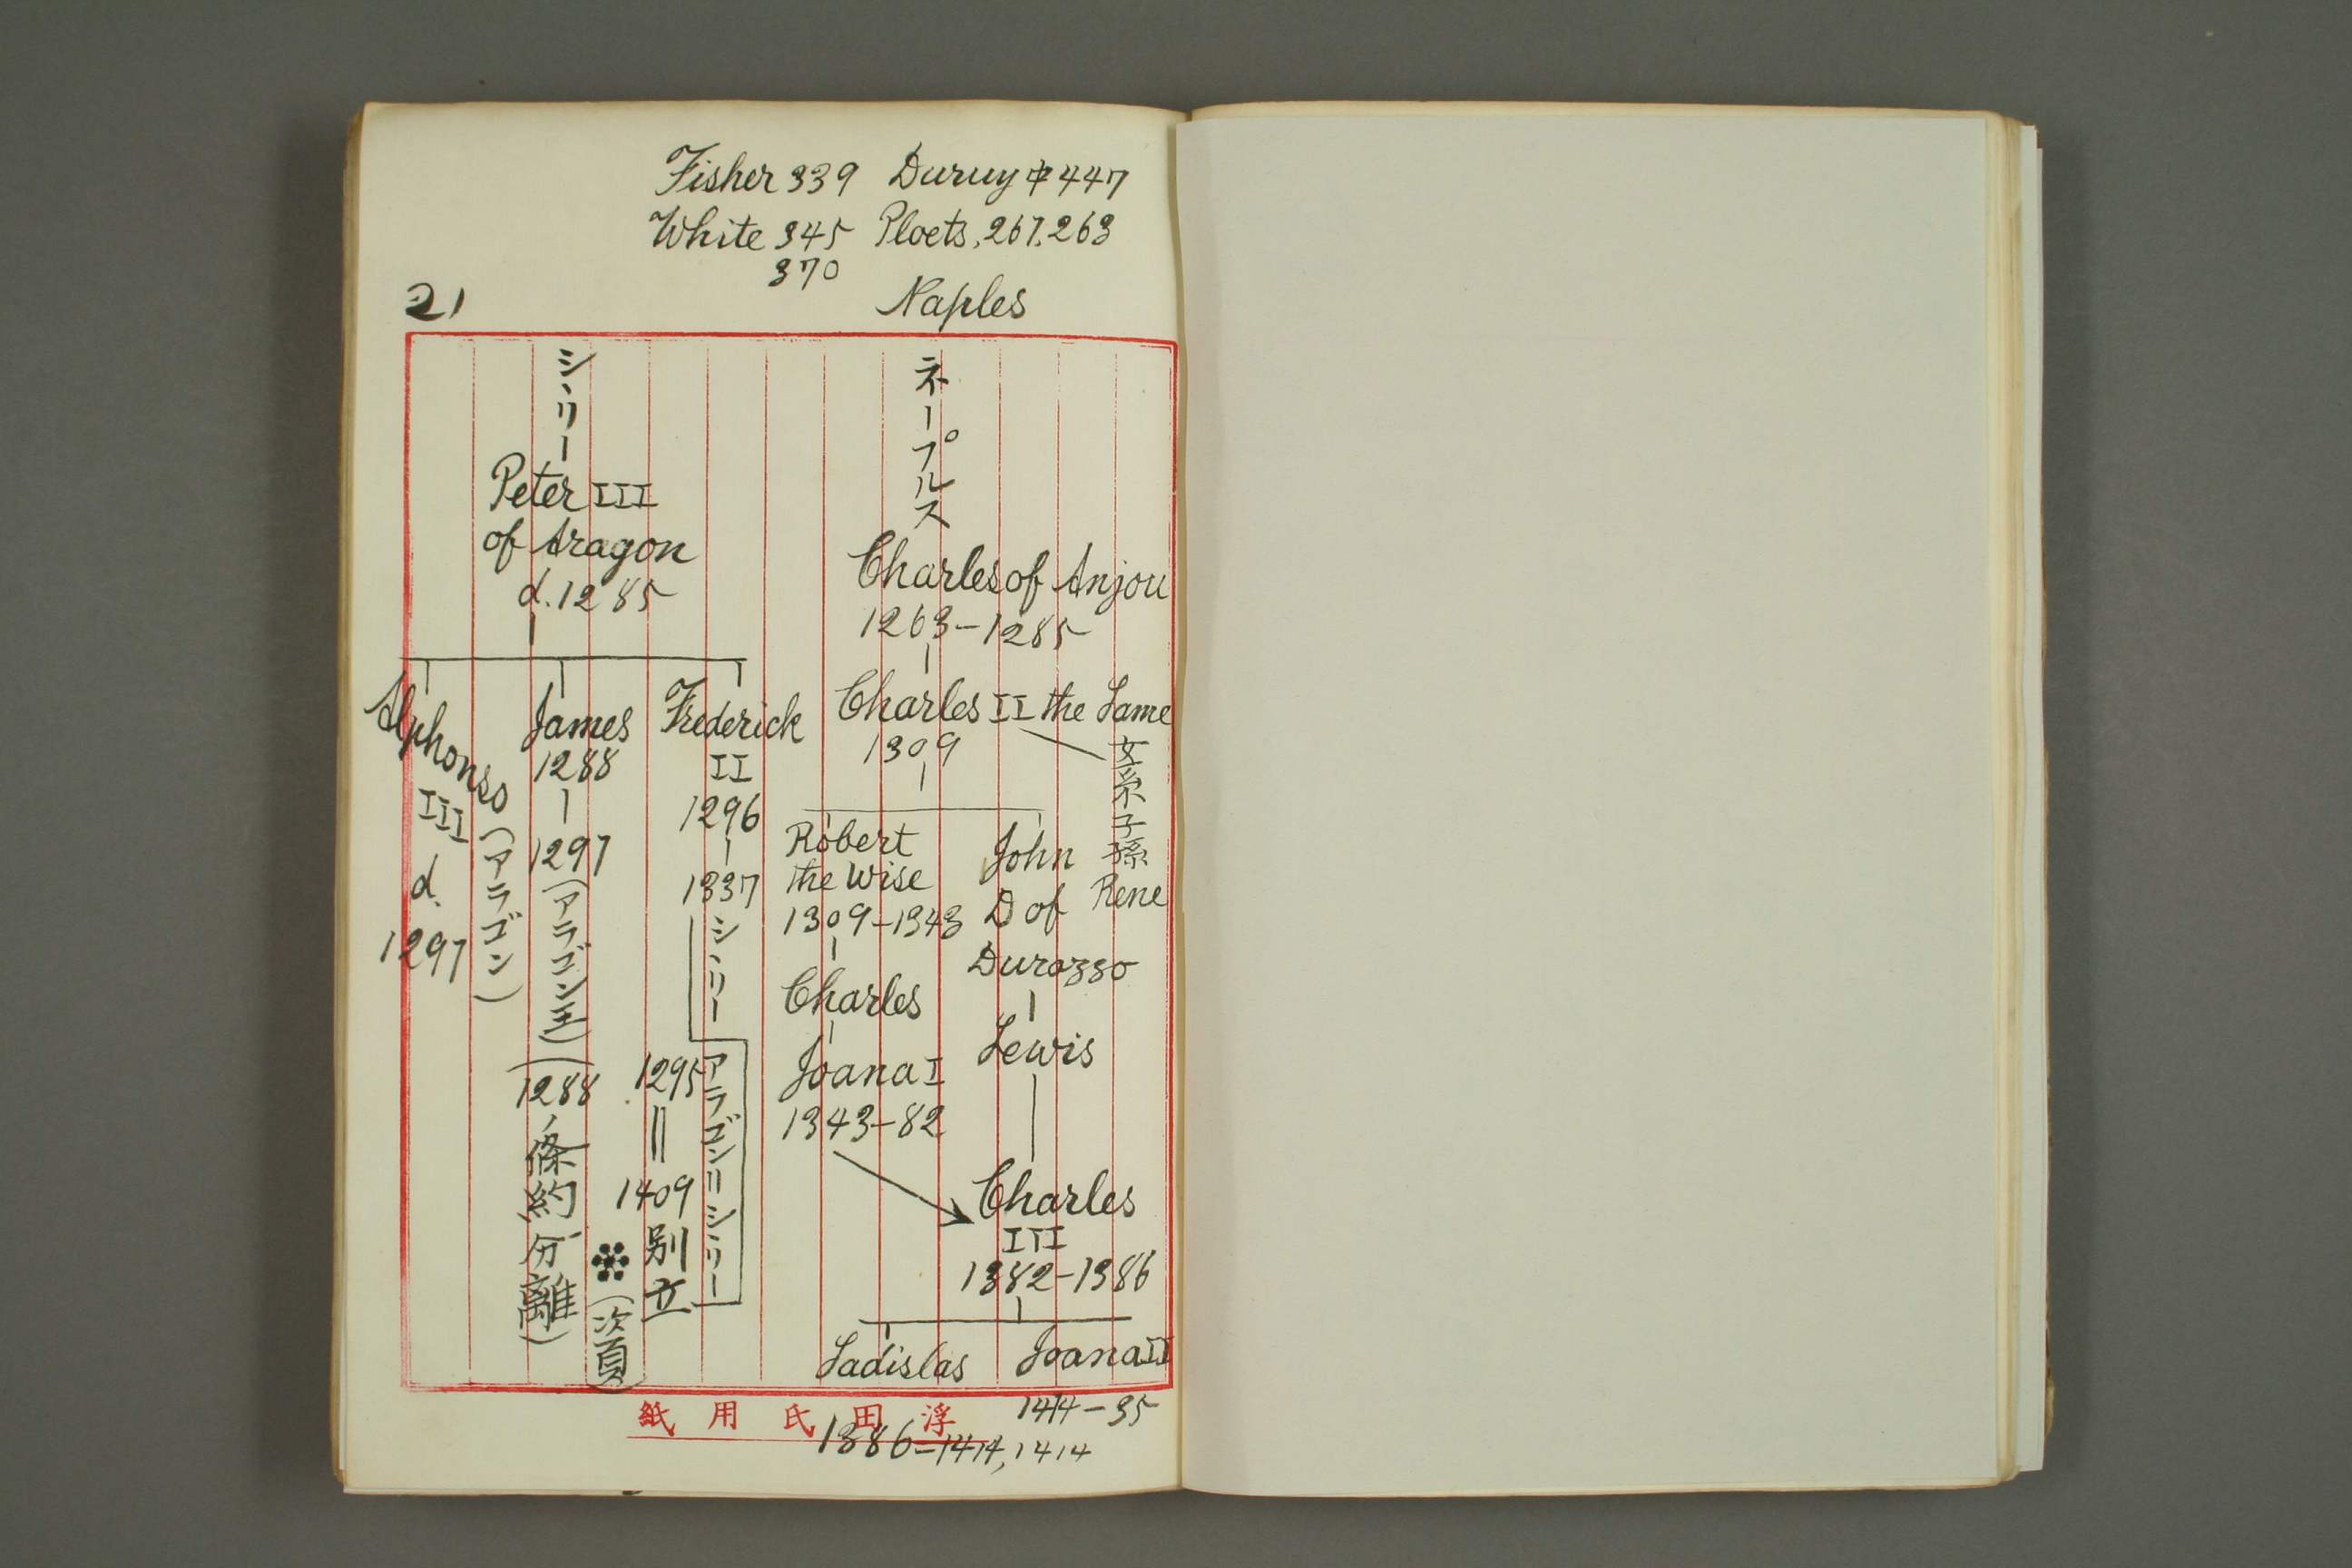 Fisher 339 Duruy中447
White 345 Ploets, 267, 263
370
21
Naples
ネープルス
Charles of Anjou
1263-1285
Charles II the Lame
1309
女系子孫
Rene
Robert
the Wise
1309-1343
Charles
Joana I
1343-82
John
D of
Durazzo
Lewis
Charles
III
1382-1386
Ladislas
1386-1414, 1414
Joana II
1414-35
シヽリー
Peter III
of Aragon
d. 1285
Frederick
II
1296
1337
シヽリー
アラゴン=シヽリー
1295
=
1409
別立
(次頁)
James
1288
1297
(アラゴン王)
(1288ノ條約分離)
Alphonso
III
d.
1297
(アラゴン)
浮田氏用紙